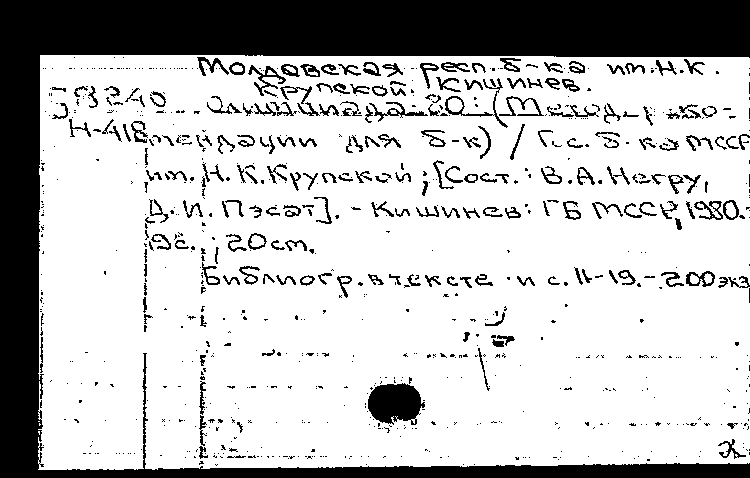 Молдовская респ. б-ка им. Н.К.
Крупской. Кишинев.
5Я240 Олимпиада-80: (Метод. реко-
Н-418 мендации для б-к) / Гос. б-ка МССР
им. Н.К. Крупской; [Сост.: В.А. Негру,
Д.И. Пэсат]. - Кишинев: ГБ МССР, 1980.-
19с.; 20 см.
Библиогр. в тексте и с. 11-19. - 200 экз